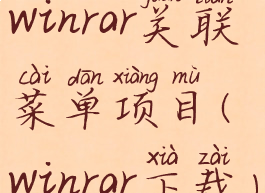 winrar关联
cài dān xiàng mù
菜单项目(
xià zài
winrar下载)